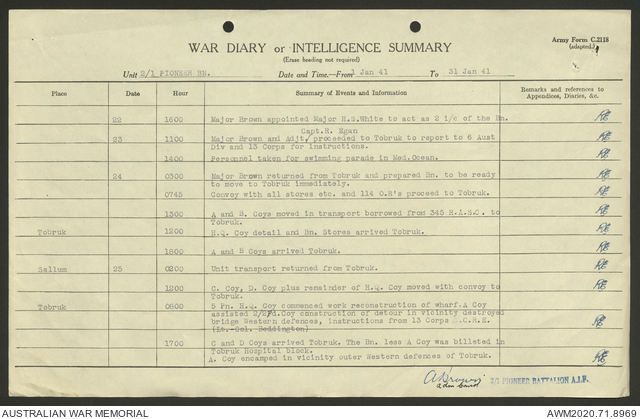 Army Form C.2118
(adapted.)
WAR DIARY or INTELLIGENCE SUMMARY
(Erase heading not required)
Unit 2/1 PIONEER BN. Date and Time.—From 1 Jan 41 To 31 Jan 41
Place Date Hour Summary of Events and Information Remarks and references to
Appendices, Diaries, &c.
22 1600 Major Brown appointed Major H.S.White to act as 2 i/c of the Bn.
Capt.R. Egan
23 1100 Major Brown and Adjt/ proceeded to Tobruk to report to 6 Aust
Div and 13 Corps for instructions.
1400 Personnel taken for swimming parade in Med.Ocean.
24 0300 Major Brown returned from Tobruk and prepared Bn. to be ready
to move to Tobruk immediately.
0745 Convoy with all stores etc. and 114 O.R's proceed to Tobruk.
1300 A and B. Coys moved in transport borrowed from 345 R.A.S.C. to
Tobruk.
Tobruk 1200 H.Q. Coy detail and Bn. Stores arrived Tobruk.
1800 A and B Coys arrived Tobruk.
Sallum 25 0200 Unit transport returned from Tobruk.
1200 C. Coy, D. Coy plus remainder of H.Q. Coy moved with convoy to
Tobruk.
Tobruk 0800 5 Pn. H.Q. Coy commenced work reconstruction of wharf. A Coy
assisted 2/2Fd.Coy construction of detour in vicinity destroyed
bridge Western defences, instructions from 13 Corps .C.R.E.
(Lt.-Col. Beddington)
1700 C and D Coys arrived Tobruk. The Bn. less A Coy was billeted in
Tobruk Hospital block.
A. Coy encamped in vicinity outer Western defences of Tobruk.
2/1 PIONEER BATTALION A.I.F.
AUSTRALIAN WAR MEMORIAL AWM2020.71.8969